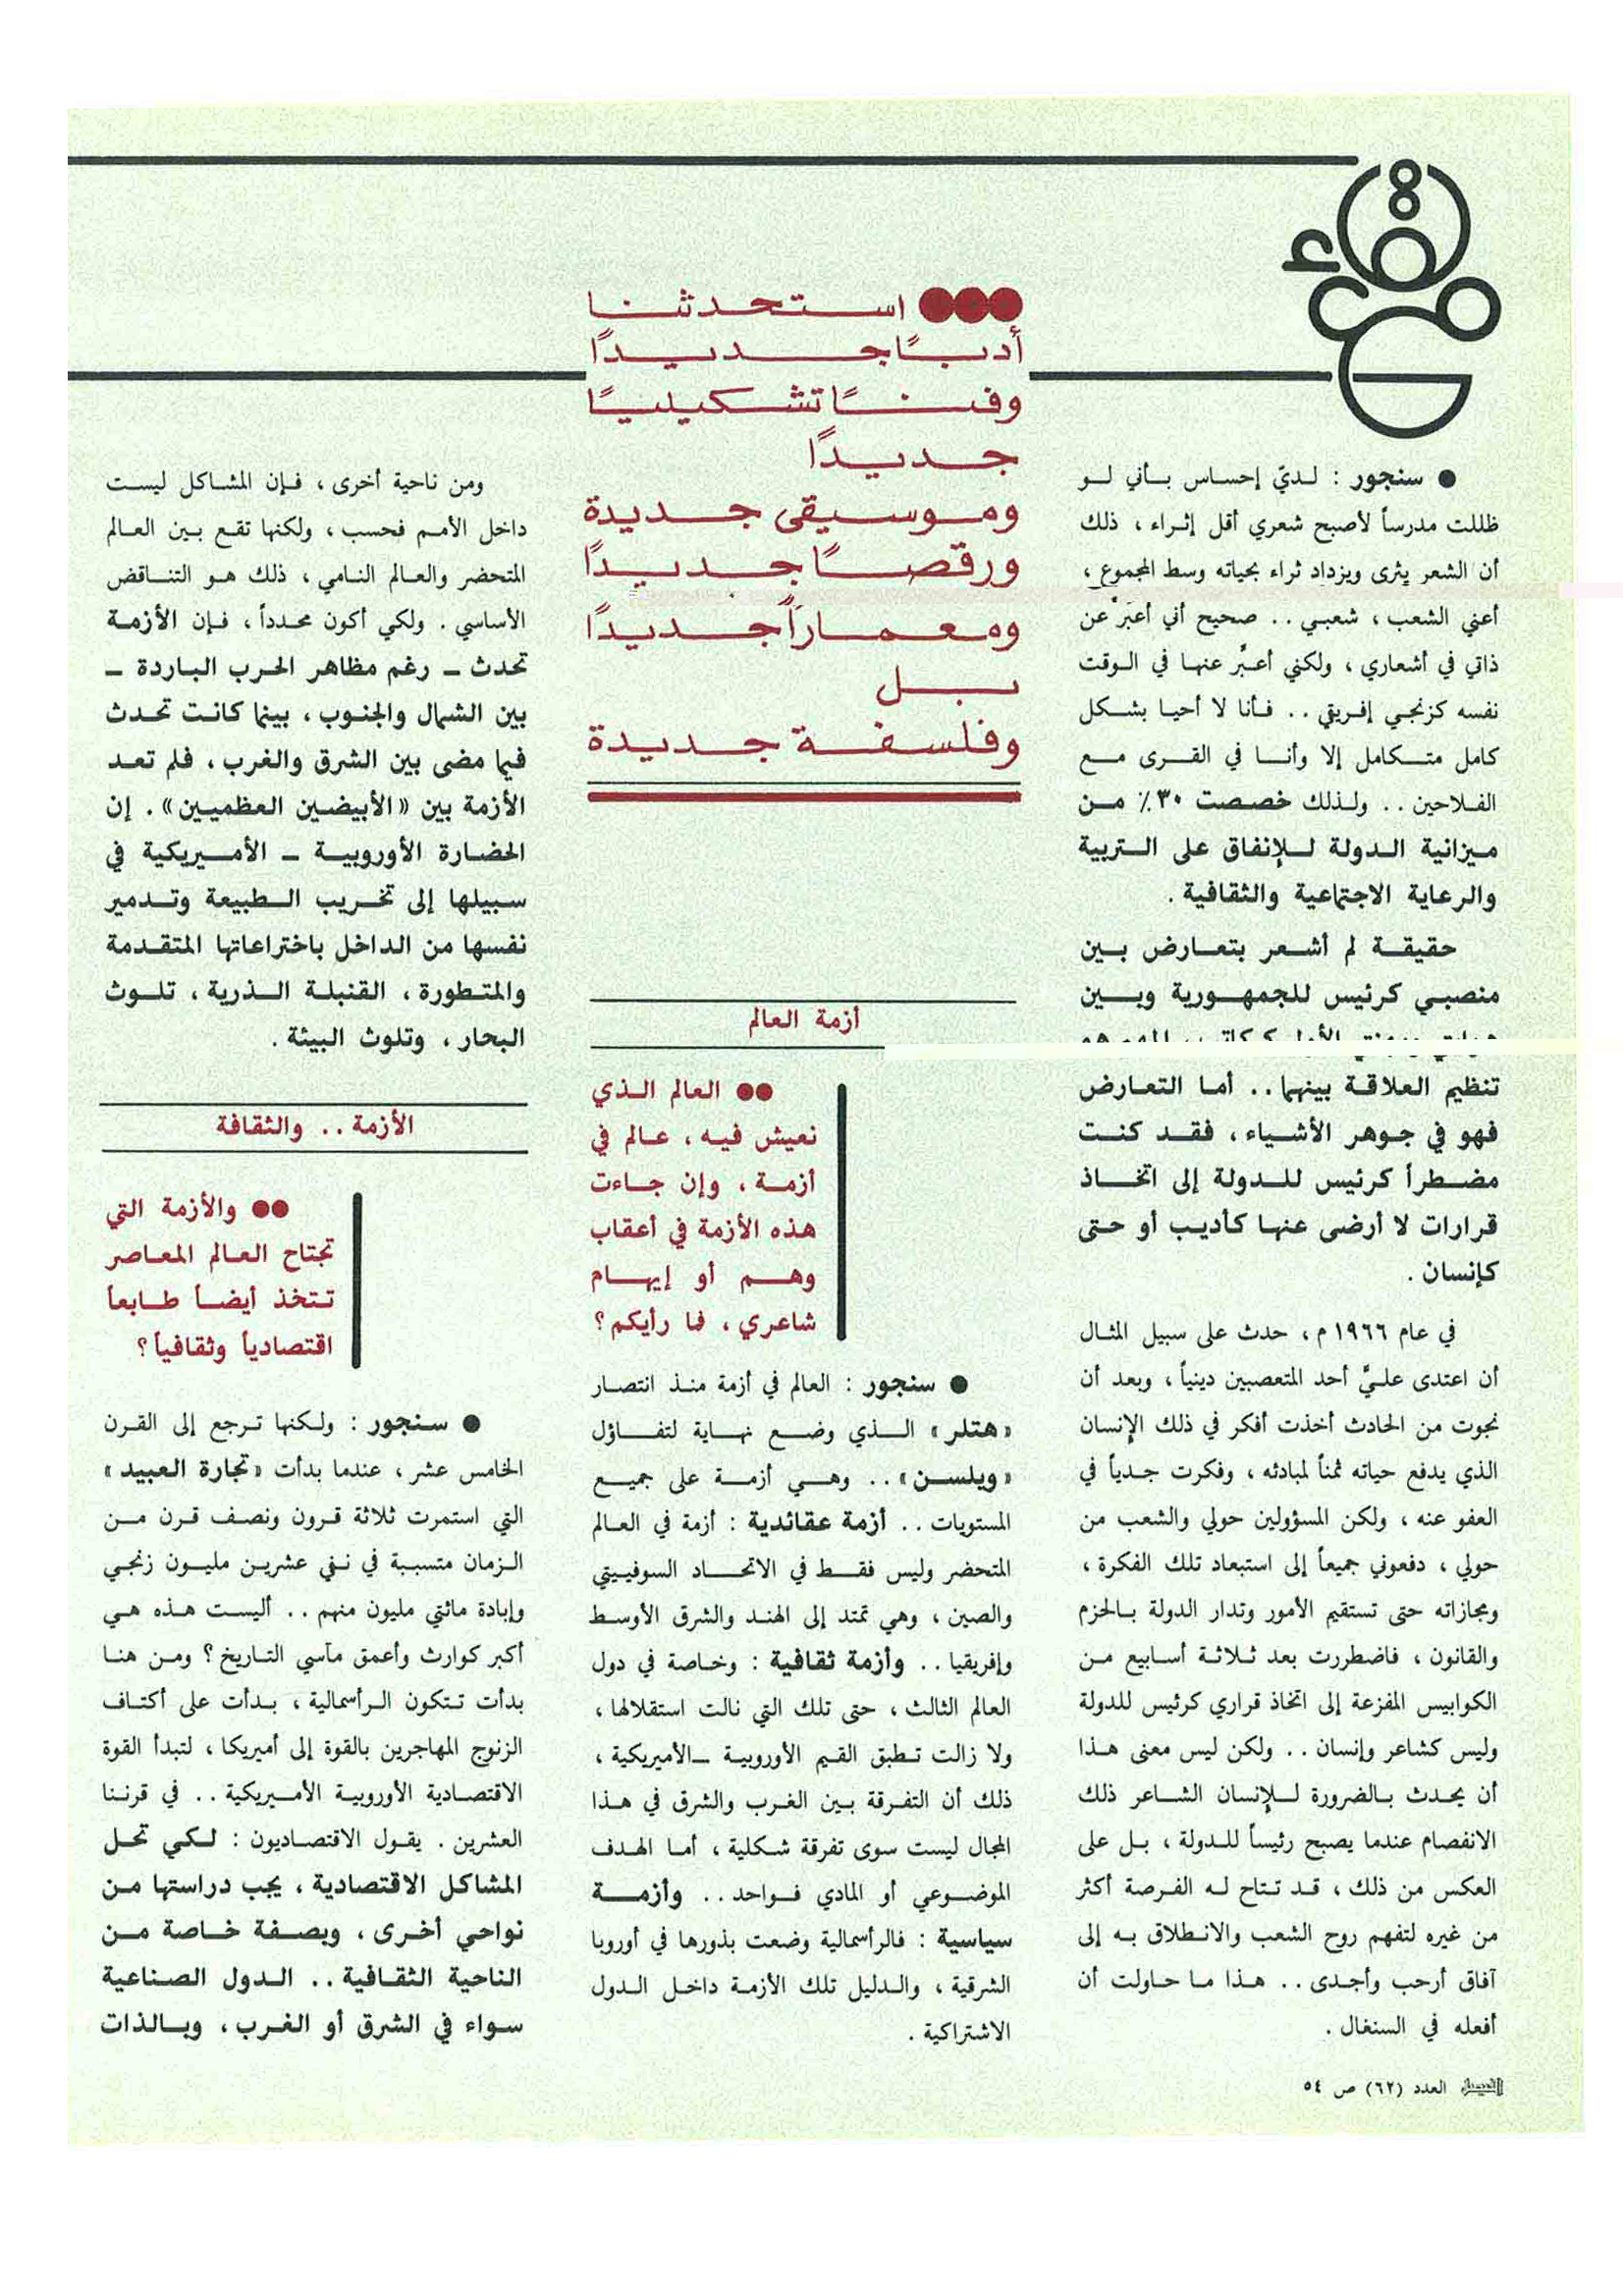 ● سنجور : لديّ إحساس بأني لو
ظللت مدرساً لأصبح شعري أقل إثراء ، ذلك
أن الشعر يثرى ويزداد ثراء بحياته وسط المجموع ،
أعني الشعب ، شعبي .. صحيح أني أعبّر عن
ذاتي في أشعاري ، ولكني أعبّر عنها في الوقت
نفسه كزنجي إفريقي .. فأنا لا أحيا بشكل
كامل متكامل إلا وأنا في القرى مع
الفلاحين .. ولذلك خصصت ٣٠٪ من
ميزانية الدولة للإنفاق على التربية
والرعاية الاجتماعية والثقافية .
حقيقة لم أشعر بتعارض بين
منصبي كرئيس للجمهورية وبين
الأول ككاتب ، المهم هو
تنظيم العلاقة بينهما .. أما التعارض
فهو في جوهر الأشياء ، فقد كنت
مضطراً كرئيس للدولة إلى اتخاذ
قرارات لا أرضى عنها كأديب أو حتى
كإنسان .
في عام ١٩٦٦ م ، حدث على سبيل المثال
أن اعتدى عليّ أحد المتعصبين دينياً ، وبعد أن
نجوت من الحادث أخذت أفكر في ذلك الإنسان
الذي يدفع حياته ثمناً لمبادئه ، وفكرت جدياً في
العفو عنه ، ولكن المسؤولين حولي والشعب من
حولي ، دفعوني جميعاً إلى استبعاد تلك الفكرة ،
ومجازاته حتى تستقيم الأمور وتدار الدولة بالحزم
والقانون ، فاضطررت بعد ثلاثة أسابيع من
الكوابيس المفزعة إلى اتخاذ قراري كرئيس للدولة
وليس كشاعر وإنسان .. ولكن ليس معنى هذا
أن يحدث بالضرورة للإنسان الشاعر ذلك
الانفصام عندما يصبح رئيساً للدولة ، بل على
العكس من ذلك ، قد تتاح له الفرصة أكثر
من غيره لتفهم روح الشعب والانطلاق به إلى
آفاق أرحب وأجدى .. هذا ما حاولت أن
أفعله في السنغال .
●●● استحدثنا
أدبًا جديدًا
وفنًا تشكيليًا
جديدًا
وموسيقى جديدة
ورقصًا جديدًا
ومعماراً جديدًا
بل
وفلسفة جديدة
أزمة العالم
●● العالم الذي
نعيش فيه ، عالم في
أزمة ، وإن جاءت
هذه الأزمة في أعقاب
وهم أو إيهام
شاعري ، فما رأيكم ؟
● سنجور : العالم في أزمة منذ انتصار
«هتلر» الذي وضع نهاية لتفاؤل
«ويلسن» .. وهي أزمة على جميع
المستويات .. أزمة عقائدية : أزمة في العالم
المتحضر وليس فقط في الاتحاد السوفييتي
والصين ، وهي تمتد إلى الهند والشرق الأوسط
وإفريقيا .. وأزمة ثقافية : وخاصة في دول
العالم الثالث ، حتى تلك التي نالت استقلالها ،
ولا زالت تطبق القيم الأوروبية ــ الأميريكية ،
ذلك أن التفرقة بين الغرب والشرق في هذا
المجال ليست سوى تفرقة شكلية ، أما الهدف
الموضوعي أو المادي فواحد .. وأزمة
سياسية : فالرأسمالية وضعت بذورها في أوروبا
الشرقية ، والدليل تلك الأزمة داخل الدول
الاشتراكية .
ومن ناحية أخرى ، فإن المشاكل ليست
داخل الأمم فحسب ، ولكنها تقع بين العالم
المتحضر والعالم النامي ، ذلك هو التناقض
الأساسي . ولكي أكون محدداً ، فإن الأزمة
تحدث ــ رغم مظاهر الحرب الباردة ــ
بين الشمال والجنوب ، بينما كانت تحدث
فيما مضى بين الشرق والغرب ، فلم تعد
الأزمة بين «الأبيضين العظميين» . إن
الحضارة الأوروبية ــ الأميريكية في
سبيلها إلى تخريب الطبيعة وتدمير
نفسها من الداخل باختراعاتها المتقدمة
والمتطورة ، القنبلة الذرية ، تلوث
البحار ، وتلوث البيئة .
الأزمة .. والثقافة
●● والأزمة التي
تجتاح العالم المعاصر
تتخذ أيضاً طابعاً
اقتصادياً وثقافياً ؟
● سنجور : ولكنها ترجع إلى القرن
الخامس عشر ، عندما بدأت «تجارة العبيد»
التي استمرت ثلاثة قرون ونصف قرن من
الزمان متسببة في نفي عشرين مليون زنجي
وإبادة مائتي مليون منهم .. أليست هذه هي
أكبر كوارث وأعمق مآسي التاريخ ؟ ومن هنا
بدأت تتكون الرأسمالية ، بدأت على أكتاف
الزنوج المهاجرين بالقوة إلى أميريكا ، لتبدأ القوة
الاقتصادية الأوروبية الأميريكية .. في قرننا
العشرين . يقول الاقتصاديون : لكي تحل
المشاكل الاقتصادية ، يجب دراستها من
نواحي أخرى ، وبصفة خاصة من
الناحية الثقافية .. الدول الصناعية
سواء في الشرق أو الغرب ، وبالذات
الفيصل العدد (٦٢) ص ٥٤